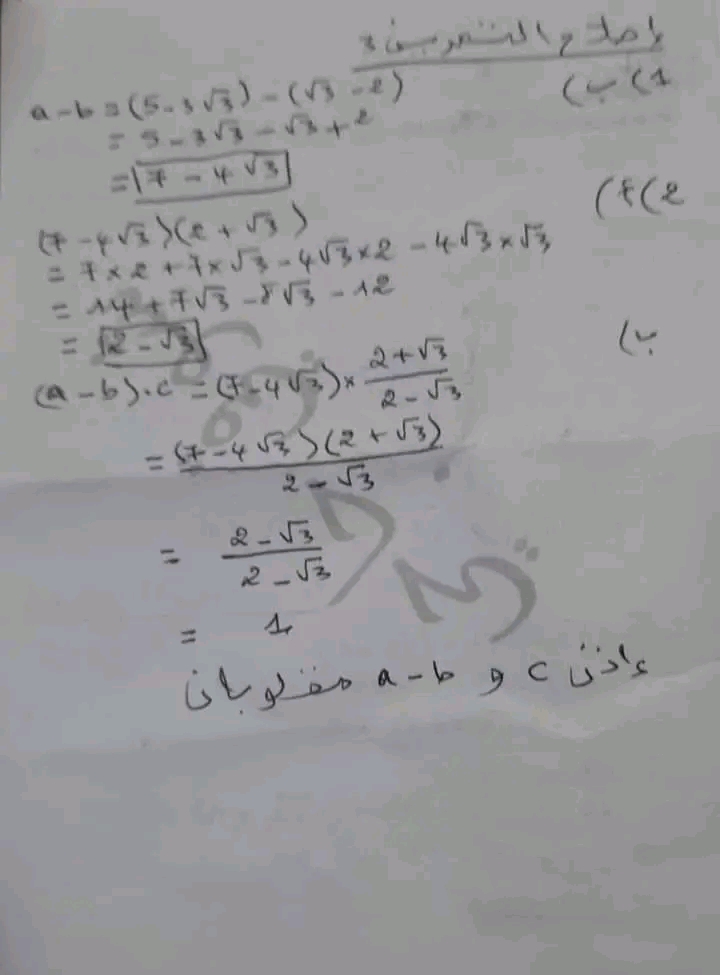 إصلاح التمرين 3
1) ب)
a-b = (5-3√3) - (√3-2)
= 5-3√3-√3+2
= 7-4√3
2) أ)
(7-4√3)(2+√3)
= 7×2+7×√3-4√3×2-4√3×√3
= 14+7√3-8√3-12
= 2-√3
ب)
(a-b).c = (7-4√3)× (2+√3)/(2-√3)
= (7-4√3)(2+√3)/(2-√3)
= (2-√3)/(2-√3)
= 1
إذن c و a-b مقلوبان